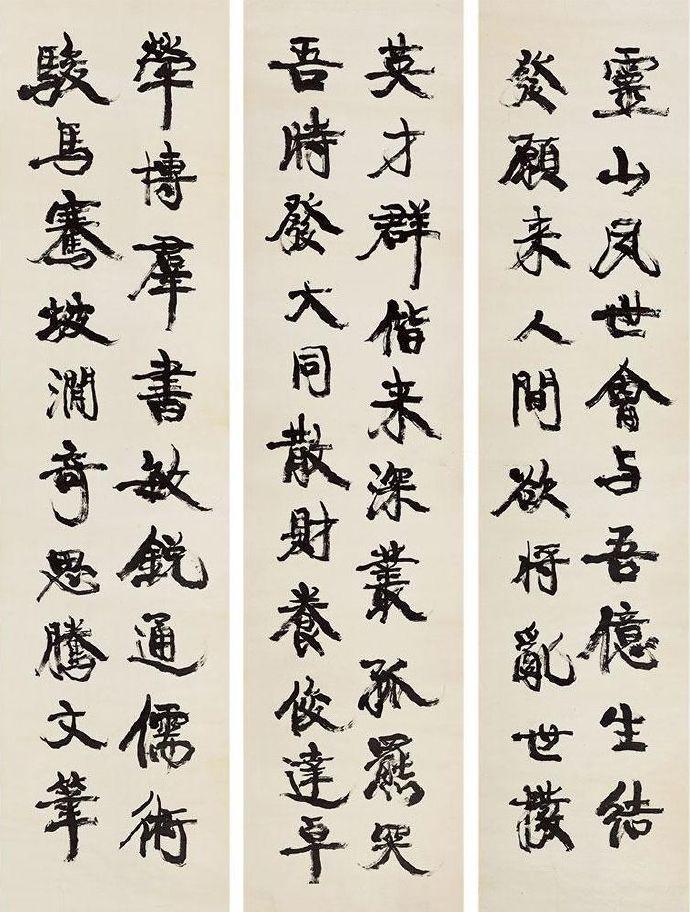 靈山夙世會与吾億生結
發願来人間欲將亂世撥
英才群偕来深叢孤羆哭
吾時發大同散財養俊達卓
犖博羣書敏銳通儒術
駿馬騫坡澗奇思騰文筆